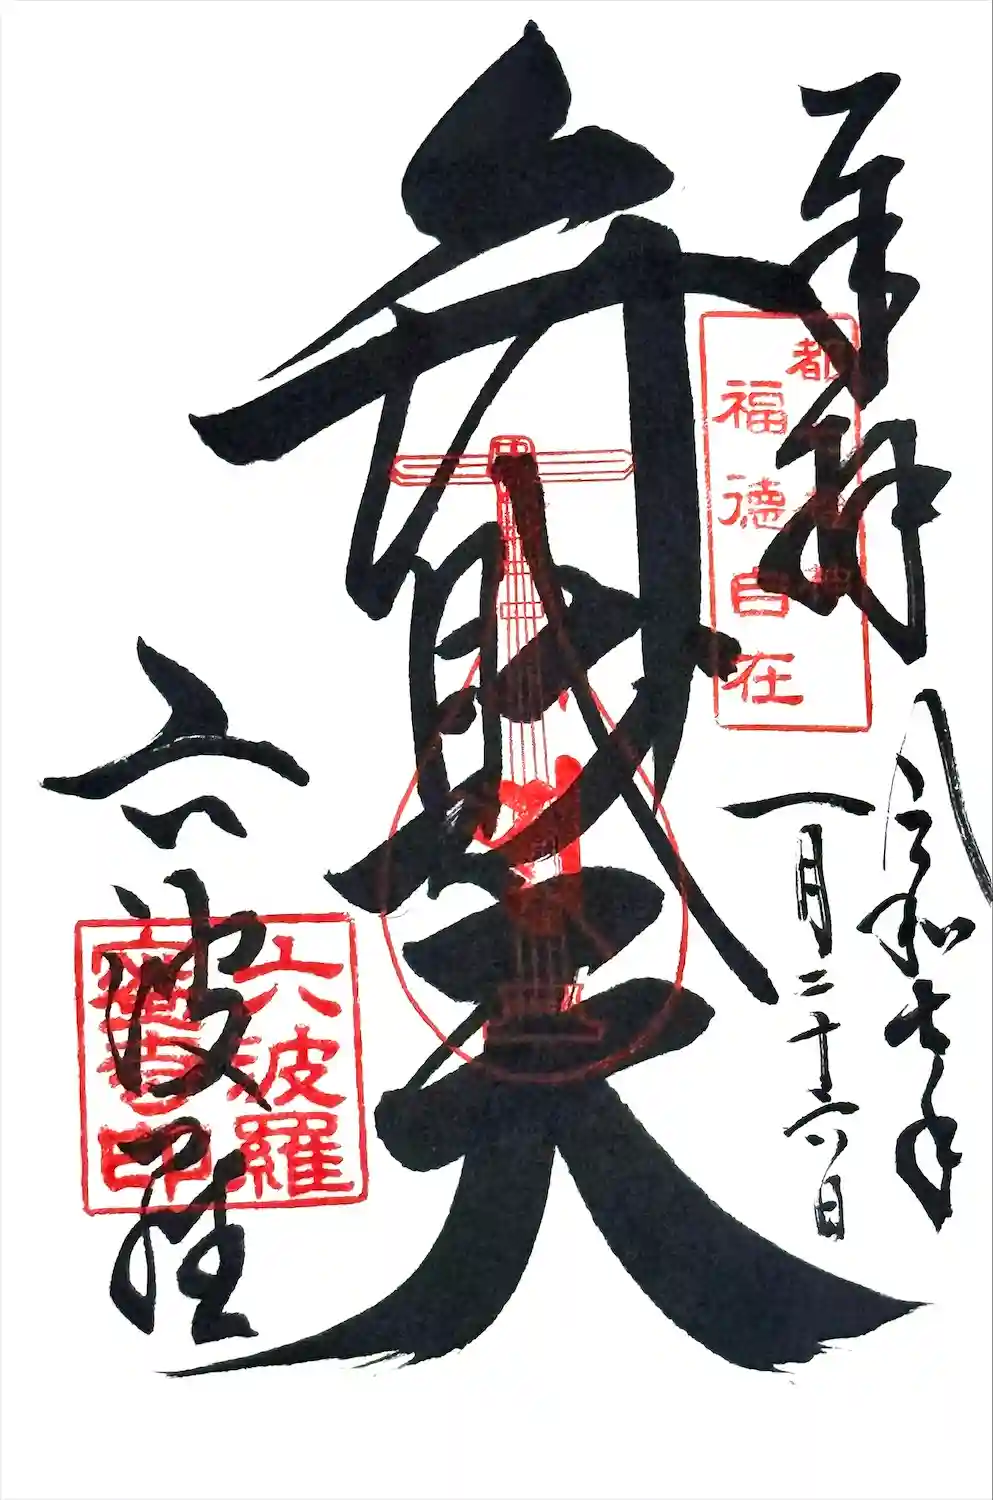 奉拝
令和七年
一月二十六日
都
福德自在
弁財天
六波羅
六波羅
蜜寺印